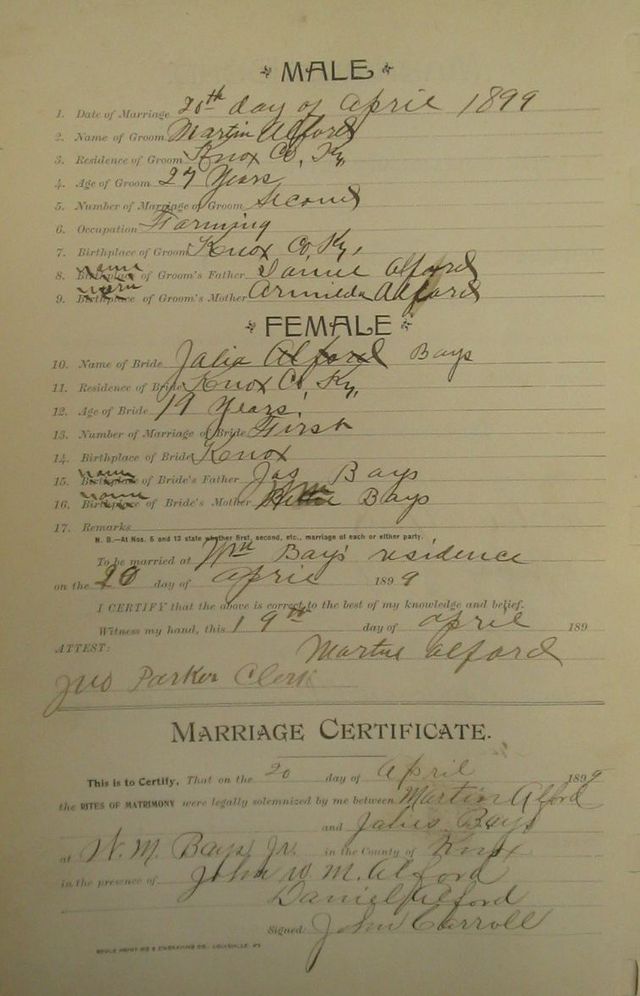 MALE
1. Date of Marriage 20th day of April 1899
2. Name of Groom Martin Alford
3. Residence of Groom Knox Co, Ky,
4. Age of Groom 27 Years
5. Number of Marriage of Groom Second
6. Occupation Farming
7. Birthplace of Groom Knox Co, Ky,
8. Birthplace name of Groom's Father Alford
9. Birthplace of Groom's Mother Armilda Alford
FEMALE
10. Name of Bride Jalia Alford Bays
11. Residence of Bride Knox Co, Ky,
12. Age of Bride 19 Years,
13. Number of Marriage of Bride First
14. Birthplace of Bride Knox
15. Birthplace name of Bride's Father Jas Bays
16. Birthplace name of Bride's Mother Bays
17. Remarks
N. B.—At Nos. 5 and 13 state whether first, second, etc., marriage of each or either party.
To be married at Wm Bays residence
on the 20 day of April 1899
I CERTIFY that the above is correct to the best of my knowledge and belief.
Witness my hand, this 19th day of April 189
ATTEST: Martin Alford
Jno Parker Clerk
MARRIAGE CERTIFICATE.
This is to Certify, That on the 20 day of April 1899
the RITES OF MATRIMONY were legally solemnized by me between Martin Alford
and Bays
at W. M. Bays Jr. in the County of Knox
in the presence of John W. M. Alford
Daniel Alford
Signed John Carroll